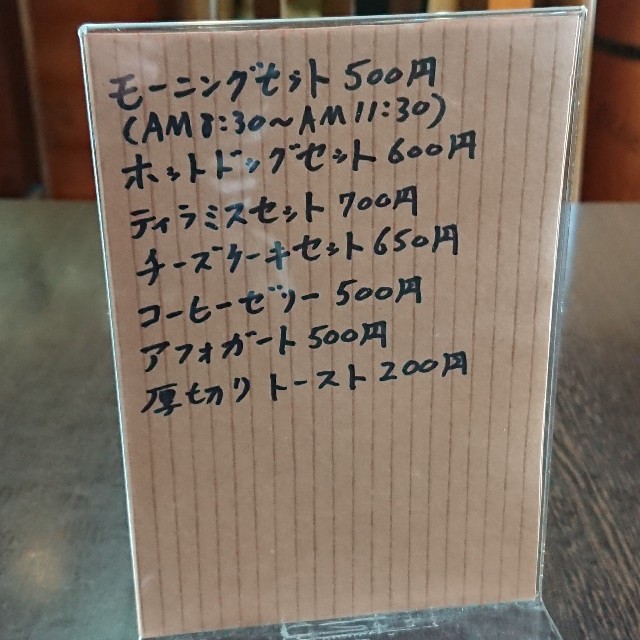 モーニングセット 500円
(AM8:30～AM11:30)
ホットドッグセット 600円
ティラミスセット 700円
チーズケーキセット 650円
コーヒーゼリー 500円
アフォガート 500円
厚切りトースト 200円